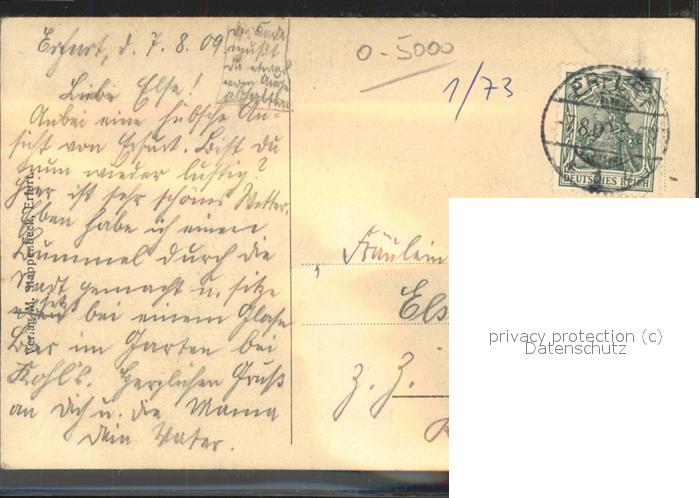 Erfurt, d. 7. 8. 09
Die Karte
mußt
Du etwas
vom Auge
abhalten
Liebe Else!
Anbei eine hübsche An-
sicht von Erfurt. Bist Du
nun wieder lustig?
Hier ist sehr schönes Wetter.
Eben habe ich einen
Bummel durch die
Stadt gemacht u. sitze
jetzt bei einem Glase
Bier im Garten bei
Kohl's. Herzlichen Gruß
an Dich u. die Mama
Dein Vater.
Verlag M. Stappenbeck, Erfurt.
0-5000
1/73
DEUTSCHES REICH
Fräulein
Els
z. Z.
privacy protection (c)
Datenschutz